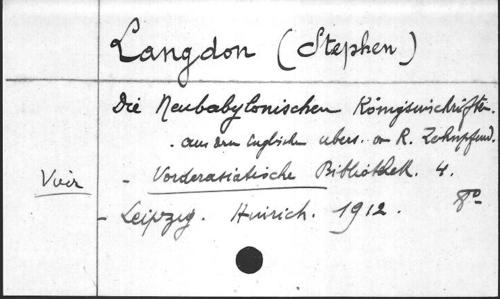 Langdon (Stephen)
Die Neubabylonischen Königsinschriften.
. aus dem Englischen übers. von R. Zehnpfund.
Voir - Vorderasiatische Bibliothek. 4.
- Leipzig. Hinrich. 1912. 8º